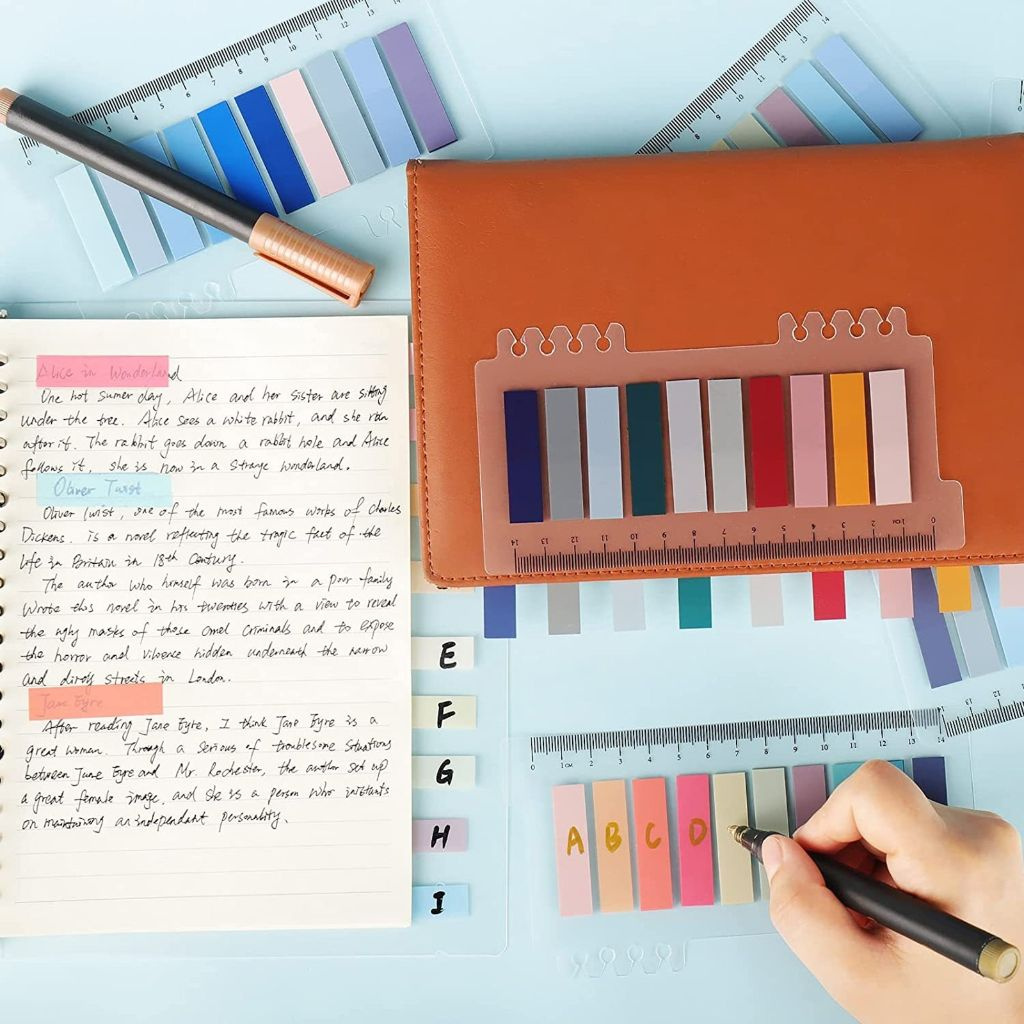 Alice in Wonderland
One hot sumer day, Alice and her sister are sitting
under the tree. Alice sees a white rabbit, and she run
after it. The rabbit goes down a rabbit hole and Alice
follows it, she is now in a strange wonderland.
Oliver Twist
Oliver Twist, one of the most famous works of Charles
Dickens. is a novel reflecting the tragic fact of the
life in Britain in 18th Century.
The author who himself was born in a poor family
Wrote this novel in his twenties with a view to reveal
the ugly masks of those cruel criminals and to expose
the horror and violence hidden underneath the narrow
and dirty streets in London.
Jane Eyre
After reading Jane Eyre, I think Jane Eyre is a
great woman. Through a serious of troublesome situations
between Jane Eyre and Mr. Rochester, the author set up
a great female image, and she is a person who
on maintaining an independant personality.
E
F
G
H
I
14 13 12 11 10 9 8 7 6 5 4 3 2 1CM 0
0 1CM 2 3 4 5 6 7 8 9 10 11 12 13 14
A B C D